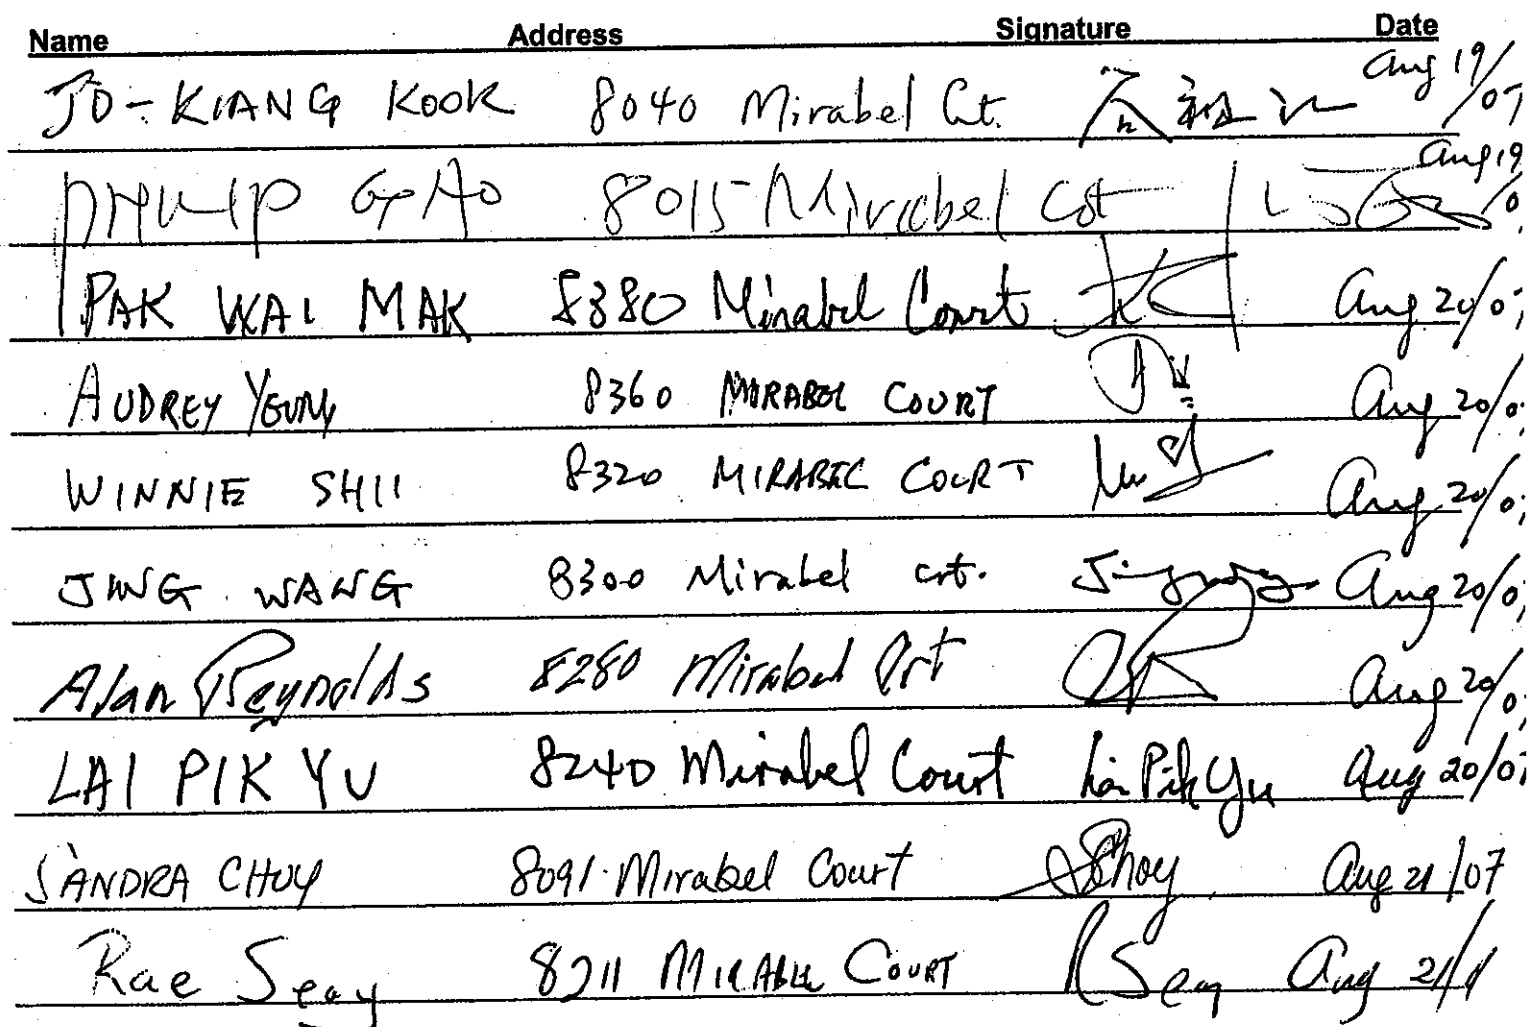 Name Address Signature Date
JO-KIANG KOOK 8040 Mirabel Crt. Aug 19/07
PHILIP GAO 8015 Mirabel Cot Aug 19
PAK WAI MAK 8380 Mirabel Court Aug 20/0
AUDREY YEUNG 8360 MIRABEL COURT Aug 20/0
WINNIE SHII 8320 MIRABEL COURT Aug 20/0
JING WANG 8300 Mirabel crt. Aug 20/0
Alan Reynolds 8280 Mirabel Crt Aug 20/0
LAI PIK YU 8240 Mirabel Court Lai Pik Yu Aug 20/07
SANDRA CHOY 8091 Mirabel Court SChoy Aug 21/07
Rae Seay 8211 MIRABLE COURT RSeay Aug 21/